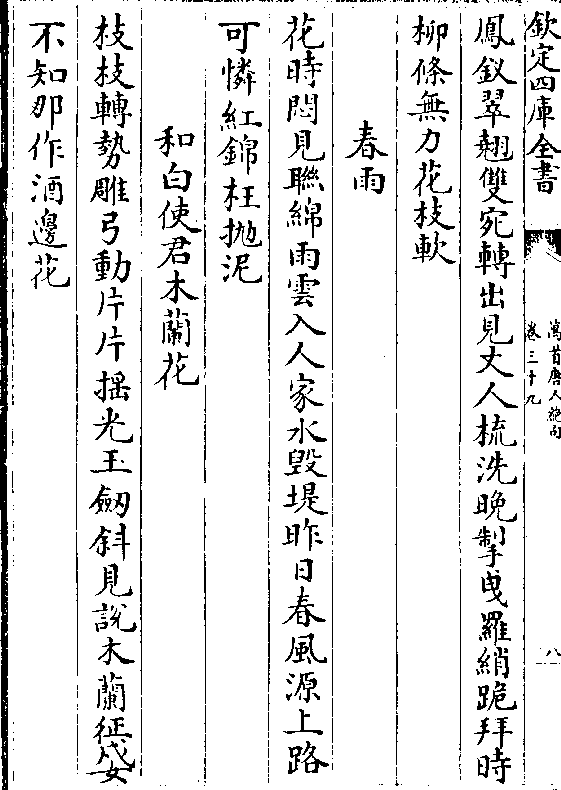 欽定四庫全書
萬首唐人絶句
卷三十九
八
鳳釵翠翹雙宛轉出見丈人梳洗晚掣曵羅綃跪拜時
柳條無力花枝軟
春雨
花時悶見聯綿雨雲入人家水毁堤昨日春風源上路
可憐紅錦枉抛泥
和白使君木蘭花
枝枝轉勢雕弓動片片揺光玉劒斜見說木蘭征戍女
不知那作酒邊花